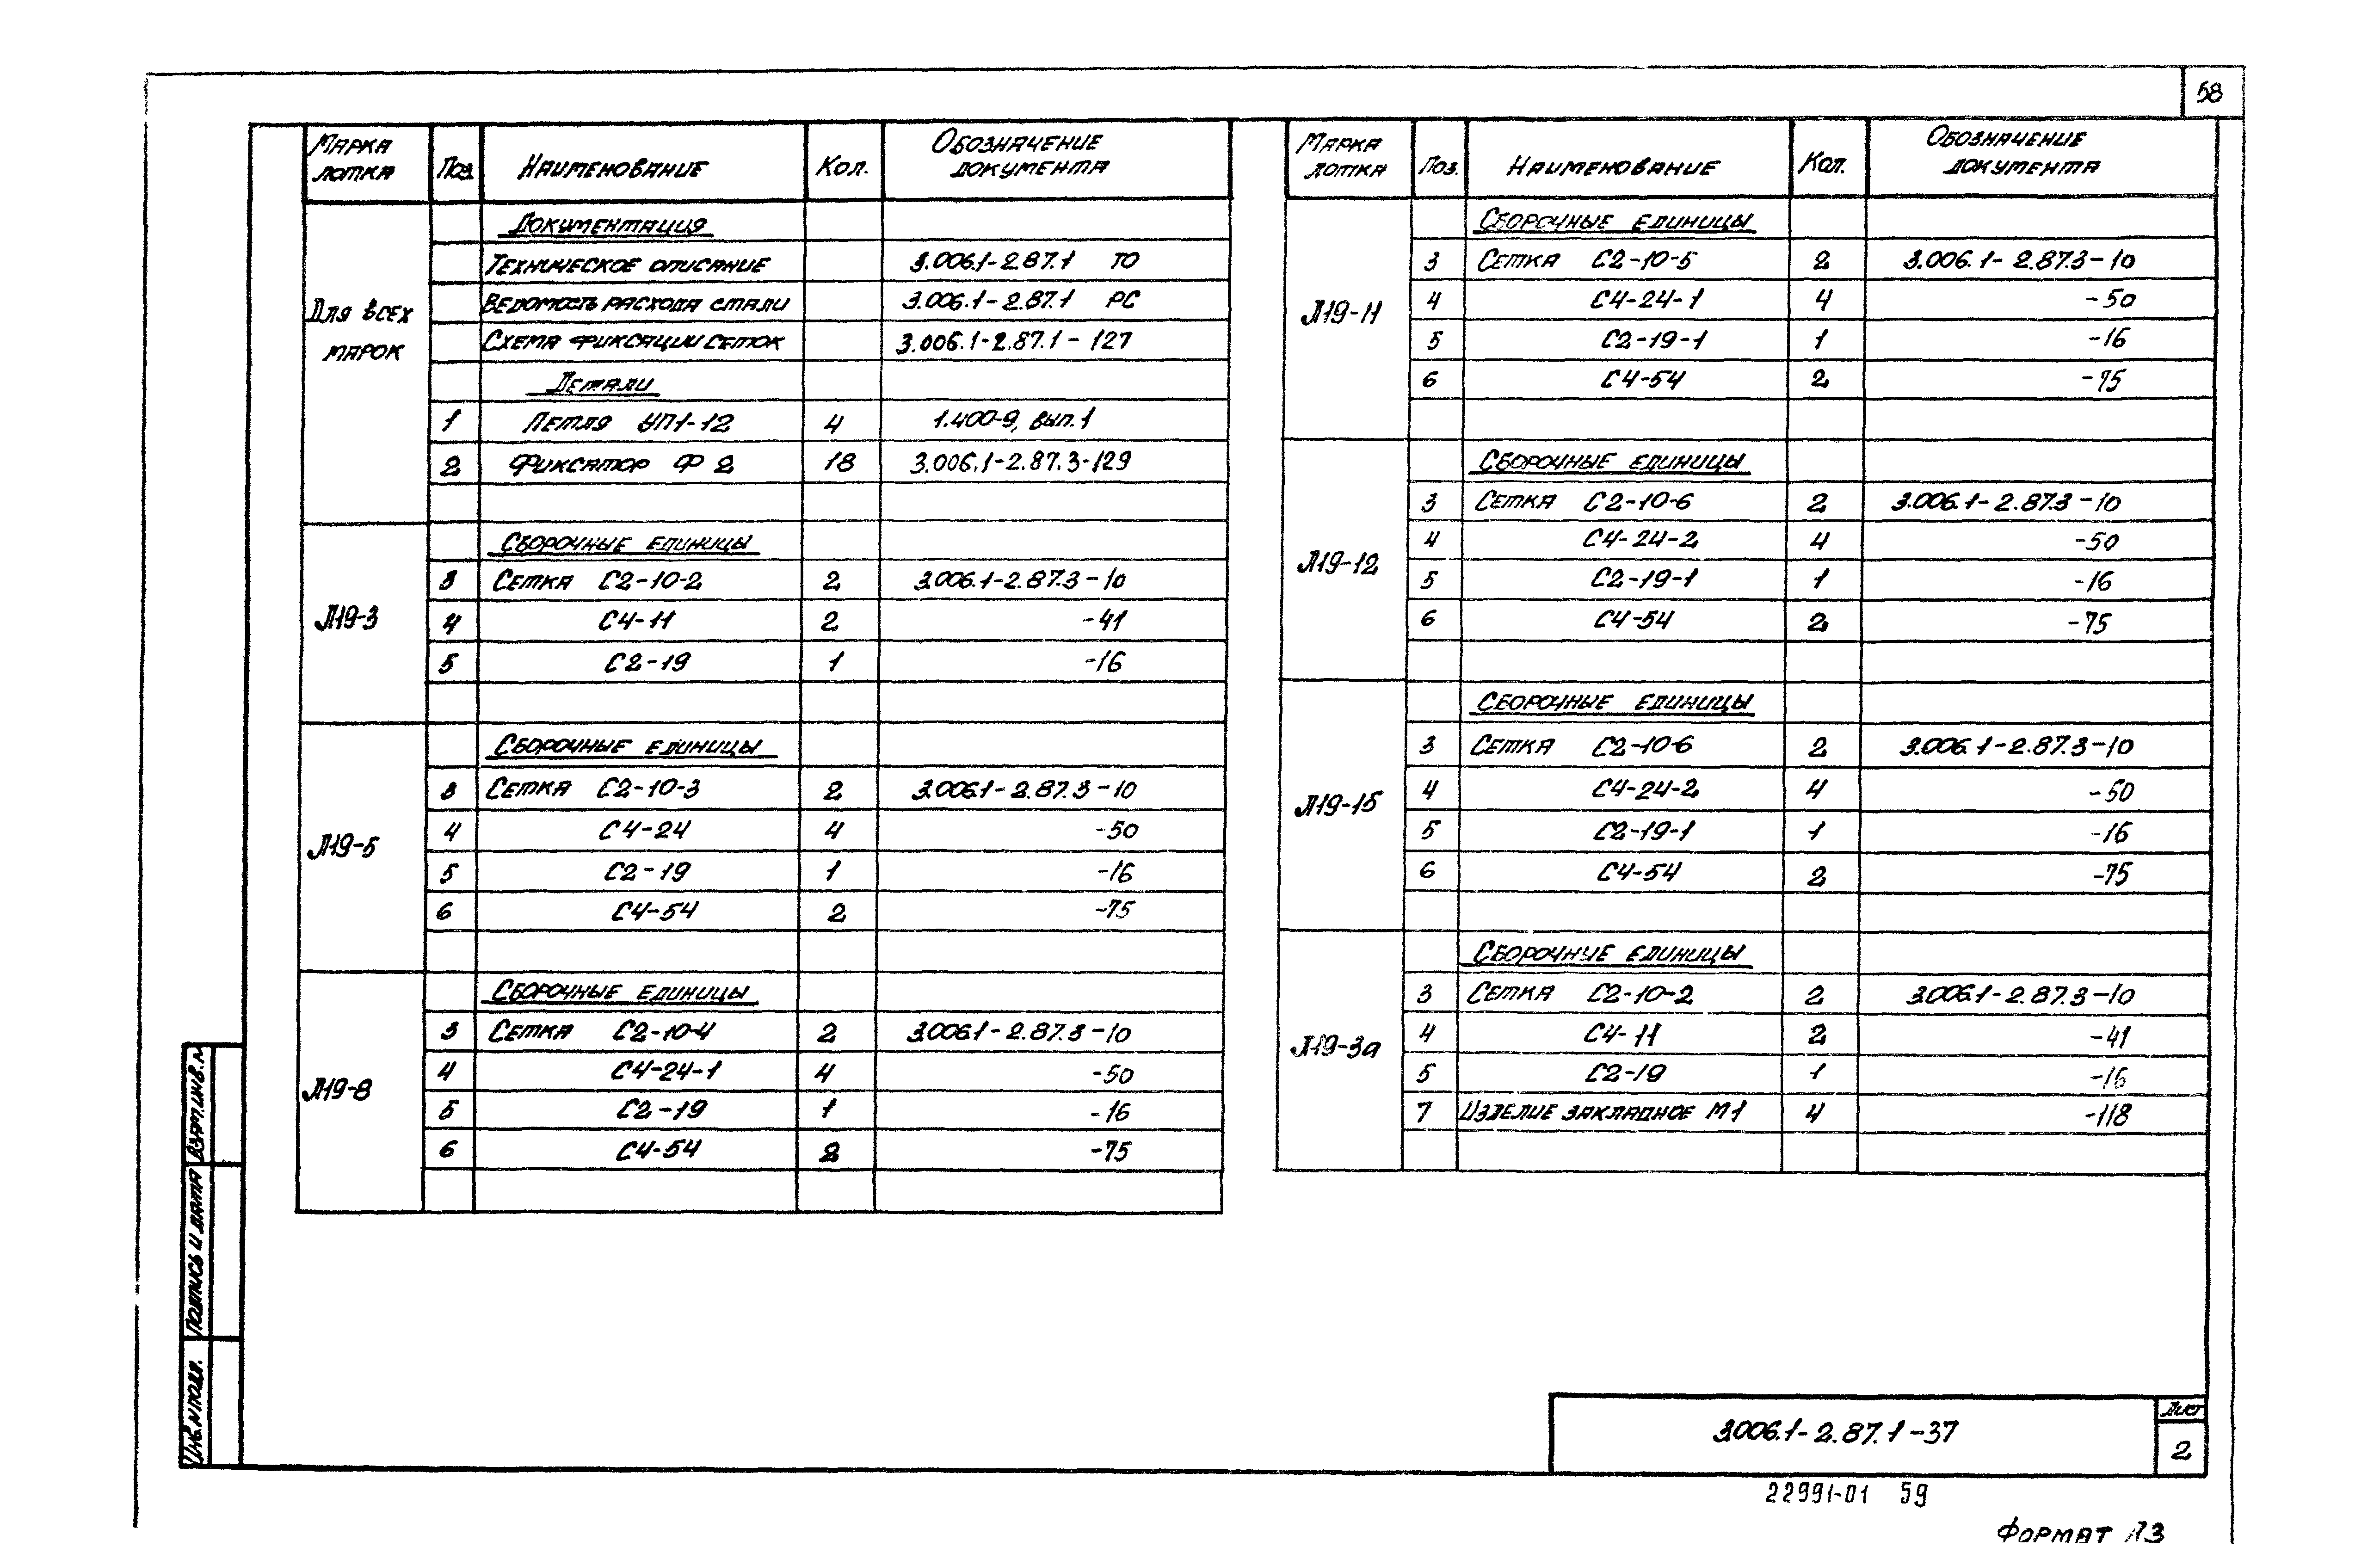 58
Марка лотка Поз. Наименование Кол. Обозначение документа
Для всех марок
Документация
Техническое описание 3.006.1-2.87.1 ТО
Ведомость расхода стали 3.006.1-2.87.1 РС
Схема фиксации сеток 3.006.1-2.87.1-127
Детали
1 Петля УП1-12 4 1.400-9, вып.1
2 Фиксатор Ф2 18 3.006.1-2.87.3-129
Л19-3
Сборочные единицы
3 Сетка С2-10-2 2 3.006.1-2.87.3-10
4 С4-11 2 -41
5 С2-19 1 -16
Л19-5
Сборочные единицы
3 Сетка С2-10-3 2 3.006.1-2.87.3-10
4 С4-24 4 -50
5 С2-19 1 -16
6 С4-54 2 -75
Л19-8
Сборочные единицы
3 Сетка С2-10-4 2 3.006.1-2.87.3-10
4 С4-24-1 4 -50
5 С2-19 1 -16
6 С4-54 2 -75
Марка лотка Поз. Наименование Кол. Обозначение документа
Л19-11
Сборочные единицы
3 Сетка С2-10-5 2 3.006.1-2.87.3-10
4 С4-24-1 4 -50
5 С2-19-1 1 -16
6 С4-54 2 -75
Л19-12
Сборочные единицы
3 Сетка С2-10-6 2 3.006.1-2.87.3-10
4 С4-24-2 4 -50
5 С2-19-1 1 -16
6 С4-54 2 -75
Л19-15
Сборочные единицы
3 Сетка С2-10-6 2 3.006.1-2.87.3-10
4 С4-24-2 4 -50
5 С2-19-1 1 -16
6 С4-54 2 -75
Л19-3а
Сборочные единицы
3 Сетка С2-10-2 2 3.006.1-2.87.3-10
4 С4-11 2 -41
5 С2-19 1 -16
7 Изделие закладное М1 4 -118
Взам.инв.№
Подпись и дата
Инв.№подл.
3.006.1-2.87.1-37
Лист
2
22991-01 59
Формат А3